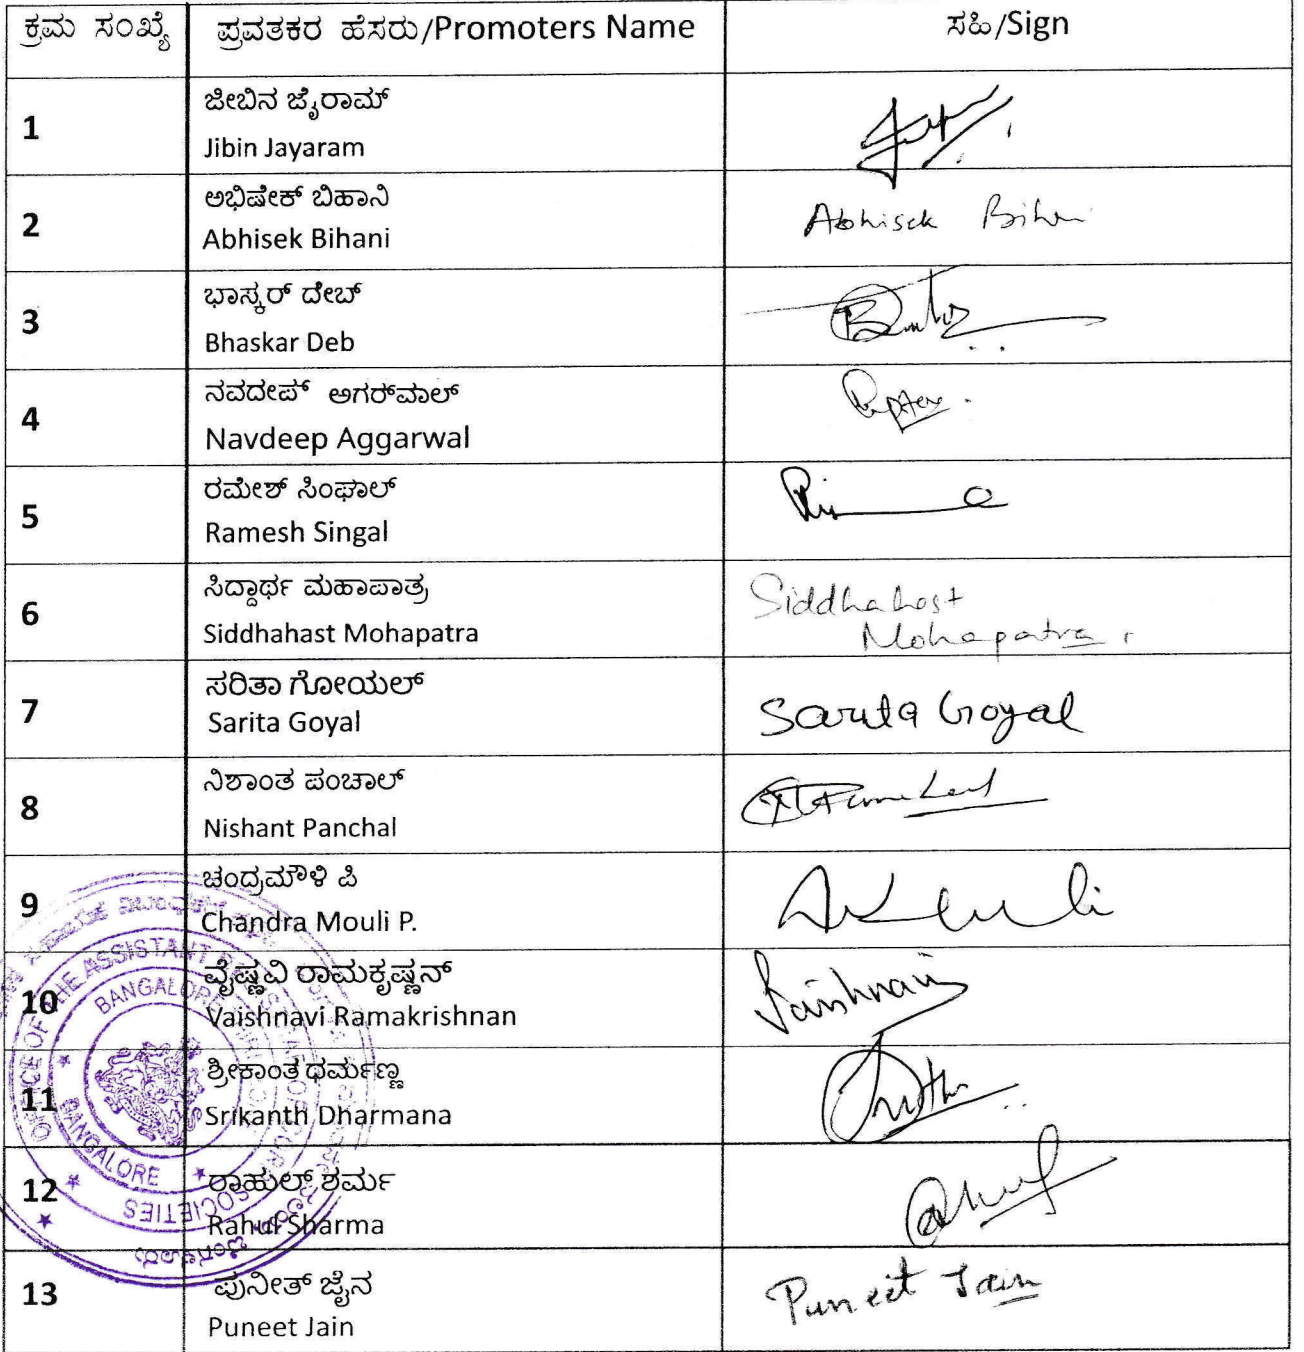 ಕ್ರಮ ಸಂಖ್ಯೆ ಪ್ರವತಕರ ಹೆಸರು/Promoters Name ಸಹಿ/Sign
1 ಜೀಬಿನ ಜೈರಾಮ್
Jibin Jayaram
2 ಅಭಿಷೇಕ್ ಬಿಹಾನಿ
Abhisek Bihani Abhisek
3 ಭಾಸ್ಕರ್ ದೇಬ್
Bhaskar Deb
4 ನವದೀಪ್ ಅಗರ್‌ವಾಲ್
Navdeep Aggarwal
5 ರಮೇಶ್ ಸಿಂಘಾಲ್
Ramesh Singal
6 ಸಿದ್ದಾರ್ಥ ಮಹಾಪಾತ್ರ Siddhahast
Siddhahast Mohapatra Mohapatra
7 ಸರಿತಾ ಗೋಯಲ್
Sarita Goyal Sarita Goyal
8 ನಿಶಾಂತ ಪಂಚಾಲ್
Nishant Panchal
9 ಚಂದ್ರಮೌಳಿ ಪಿ
Chandra Mouli P.
10 ವೈಷ್ಣವಿ ರಾಮಕೃಷ್ಣನ್
Vaishnavi Ramakrishnan Vaishnavi
11 ಶ್ರೀಕಾಂತ ಧರ್ಮಣ್ಣ
Srikanth Dharmana
12 ರಾಹುಲ್ ಶರ್ಮ
Rahul Sharma
13 ಪುನೀತ್ ಜೈನ
Puneet Jain Puneet Jain
OFFICE OF THE ASSISTANT
SOCIETIES
BANGALORE
BANGALORE